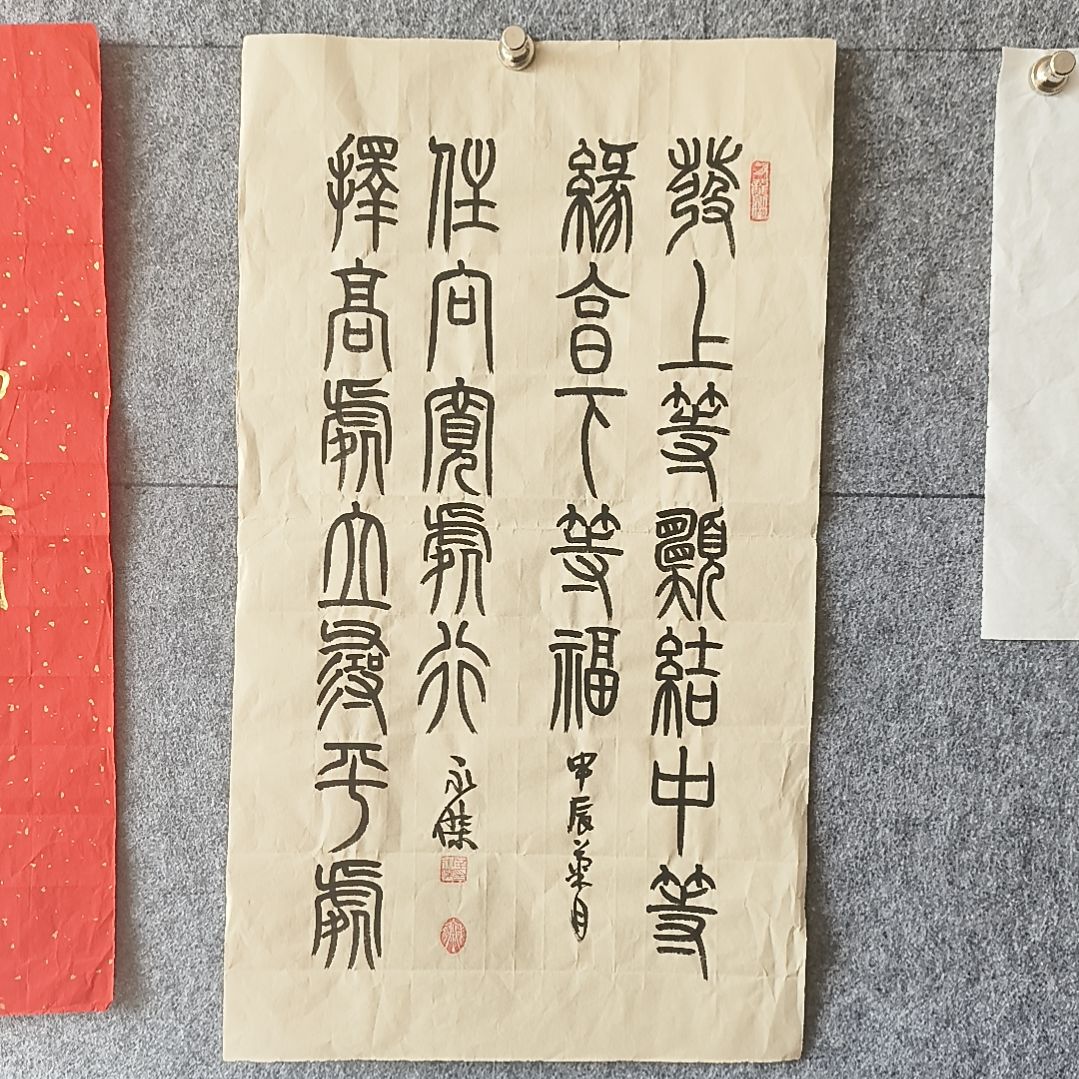 發上等願結中等
緣享下等福
甲辰月
擇高處立尋平處
住向寬處行
永傑